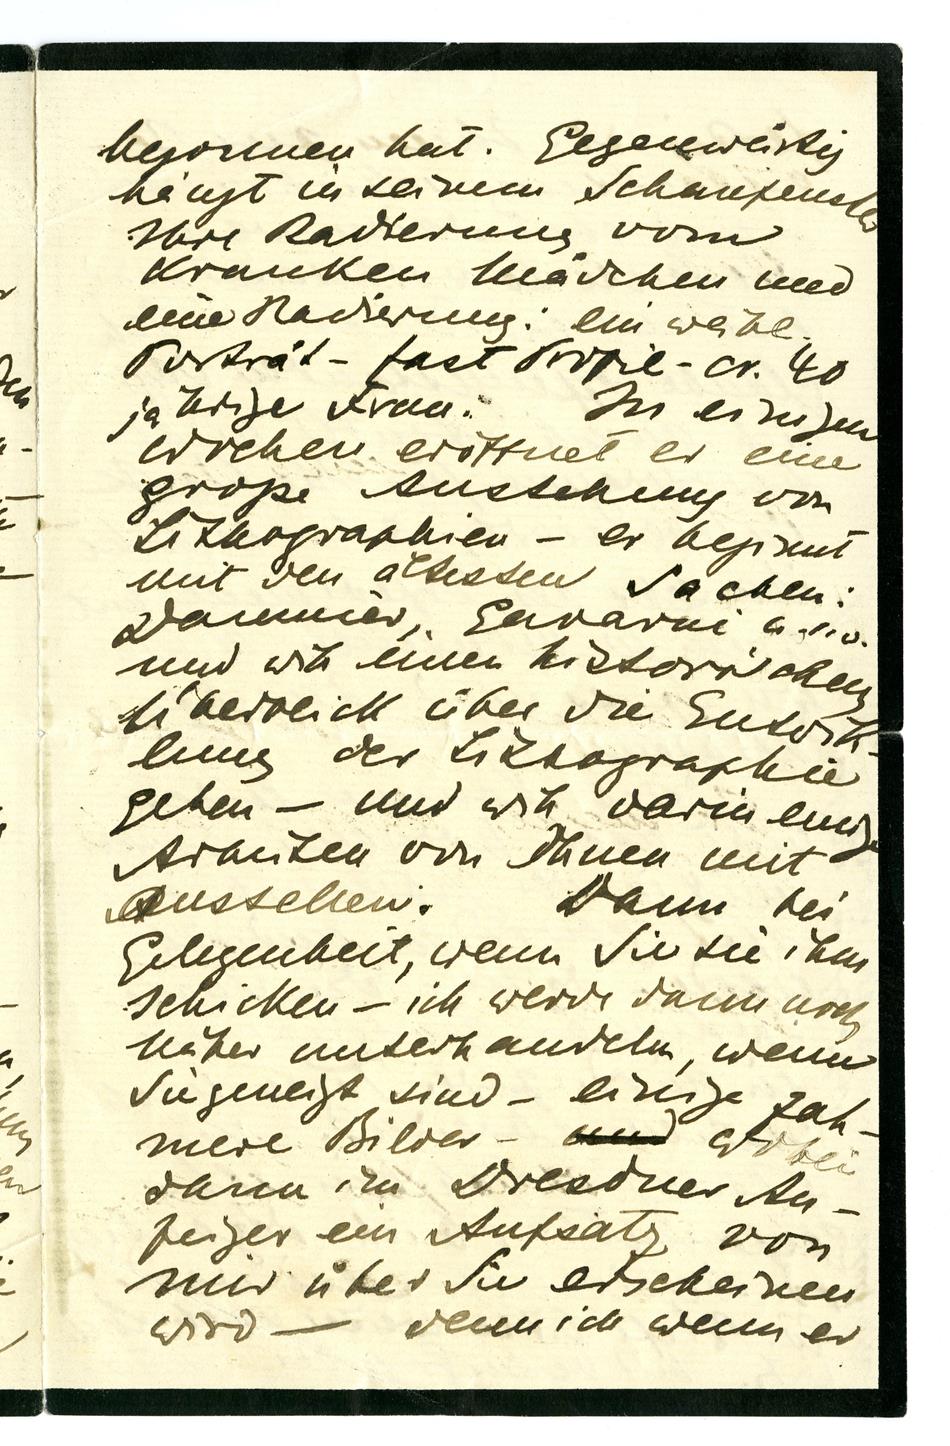 begonnen hat. Gegenwärtig
hängt in seinem Schaufenster
Ihre Radierung vom
Kranken Mädchen und
eine Radierung: ein weibl.
Porträt – fast Profil – ca. 40
jährige Frau. In einigen
Wochen eröffnet er eine
große Ausstellung von
Lithographien – er beginnt
mit den ältesten Sachen:
Daumier, Gavarni u.s.w.
und will einen historischen
Überblick über die Entwick-
lung der Lithographie
geben – und will darin einige
Arbeiten von Ihnen mit
ausstellen. Dann bei
Gelegenheit, wenn Sie sie ihm
schicken – ich werde dann noch
näher unterhandeln, wenn
Sie geneigt sind – einige zah-
mere Bilder – und wobei
dann im Dresdner An-
zeiger ein Aufsatz von
mir über Sie erscheinen
wird – denn ich wenn er